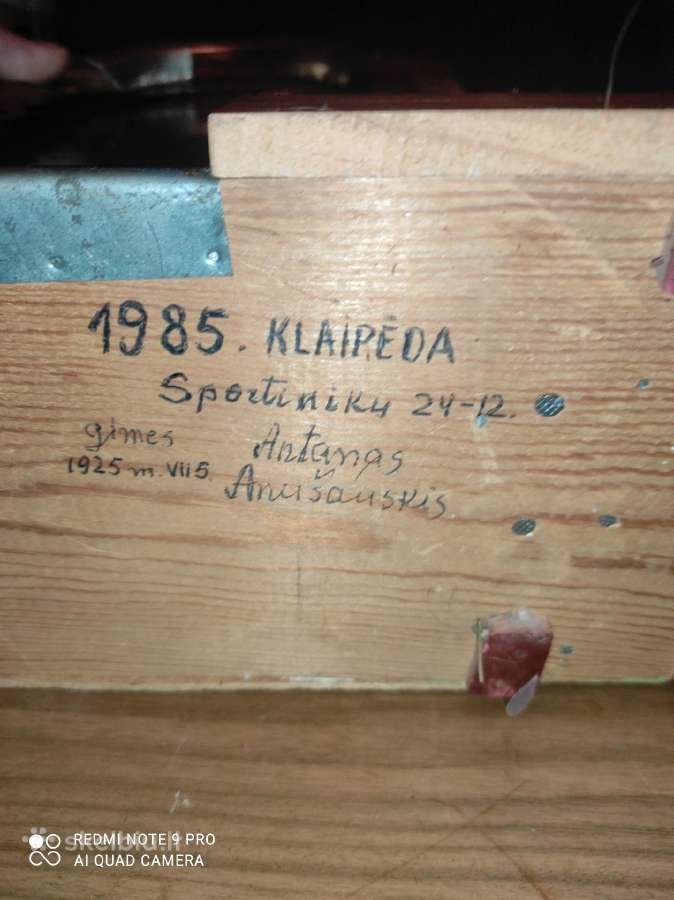 1985. KLAIPĖDA
Sportinikų 24-12.
gimęs
1925 m. VII 5.
Antanas
Anušauskis
REDMI NOTE 9 PRO
AI QUAD CAMERA
skelbiu.lt